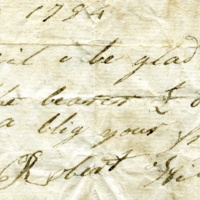 1794
it o be glad
he bearer & o
a blig your
Robert Wi